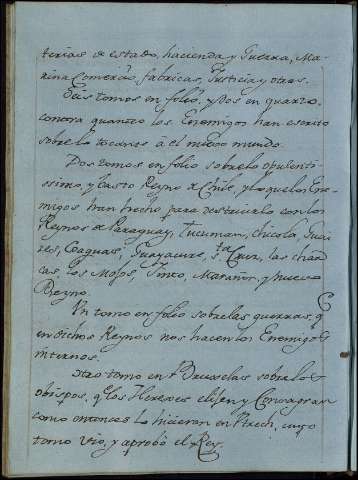 terias de estado, hacienda y Guerra, Ma-
rina Comercio, fabricas, Justicia y otras.
Seis tomos en folio, y dos en quarto,
contra quanto los Enemigos han escrito
sobre lo tocante a el nuevo mundo.
Dos tomos en folio sobre lo opulenti-
ssimo, y basto Reyno de Chile, y lo que los Ene-
migos han hecho para destruirlo con los
Reynos de Paraguay, Tucuman, Chicolo,
Guayacuru, Sta Cruz, las char-
cas, los Moxos, Tinto, Marañon, y nuevo
Reyno.
Un tomo en folio sobre las guerras, q
en dichos Reynos nos hacen los Enemigos
internos.
Otro tomo en Bruselas sobre los
obispos, q los Herexes elixen y Consagran
como entonces lo hicieron en Utrech, cuyo
tomo vio, y aprobó el Rey.